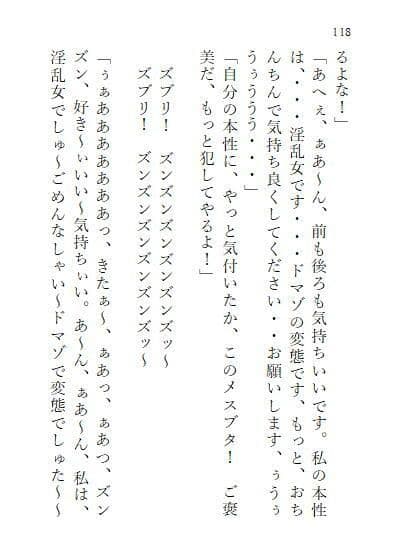 118
るよな！」
「あへぇ、ぁあ～ん、前も後ろも気持ちいいです。私の本性
は、・・・淫乱女です・・・ドマゾの変態です、もっと、おち
んちんで気持ち良くしてください・・お願いします、ぅうぅ
うぅううう・・・」
「自分の本性に、やっと気付いたか、このメスブタ！　ご褒
美だ、もっと犯してやるよ！」
ズブリ！　ズンズンズンズンズンズッ～
ズブリ！　ズンズンズンズンズンズッ～
「ぅぁああああああああっ、きたぁ～、ぁあっ、ぁあつ、ズン
ズン、好き～ぃいい～気持ちぃい。あ～ん、ぁあ～ん、私は、
淫乱女でしゅ～ごめんなしゃい～ドマゾで変態でしゅた～～